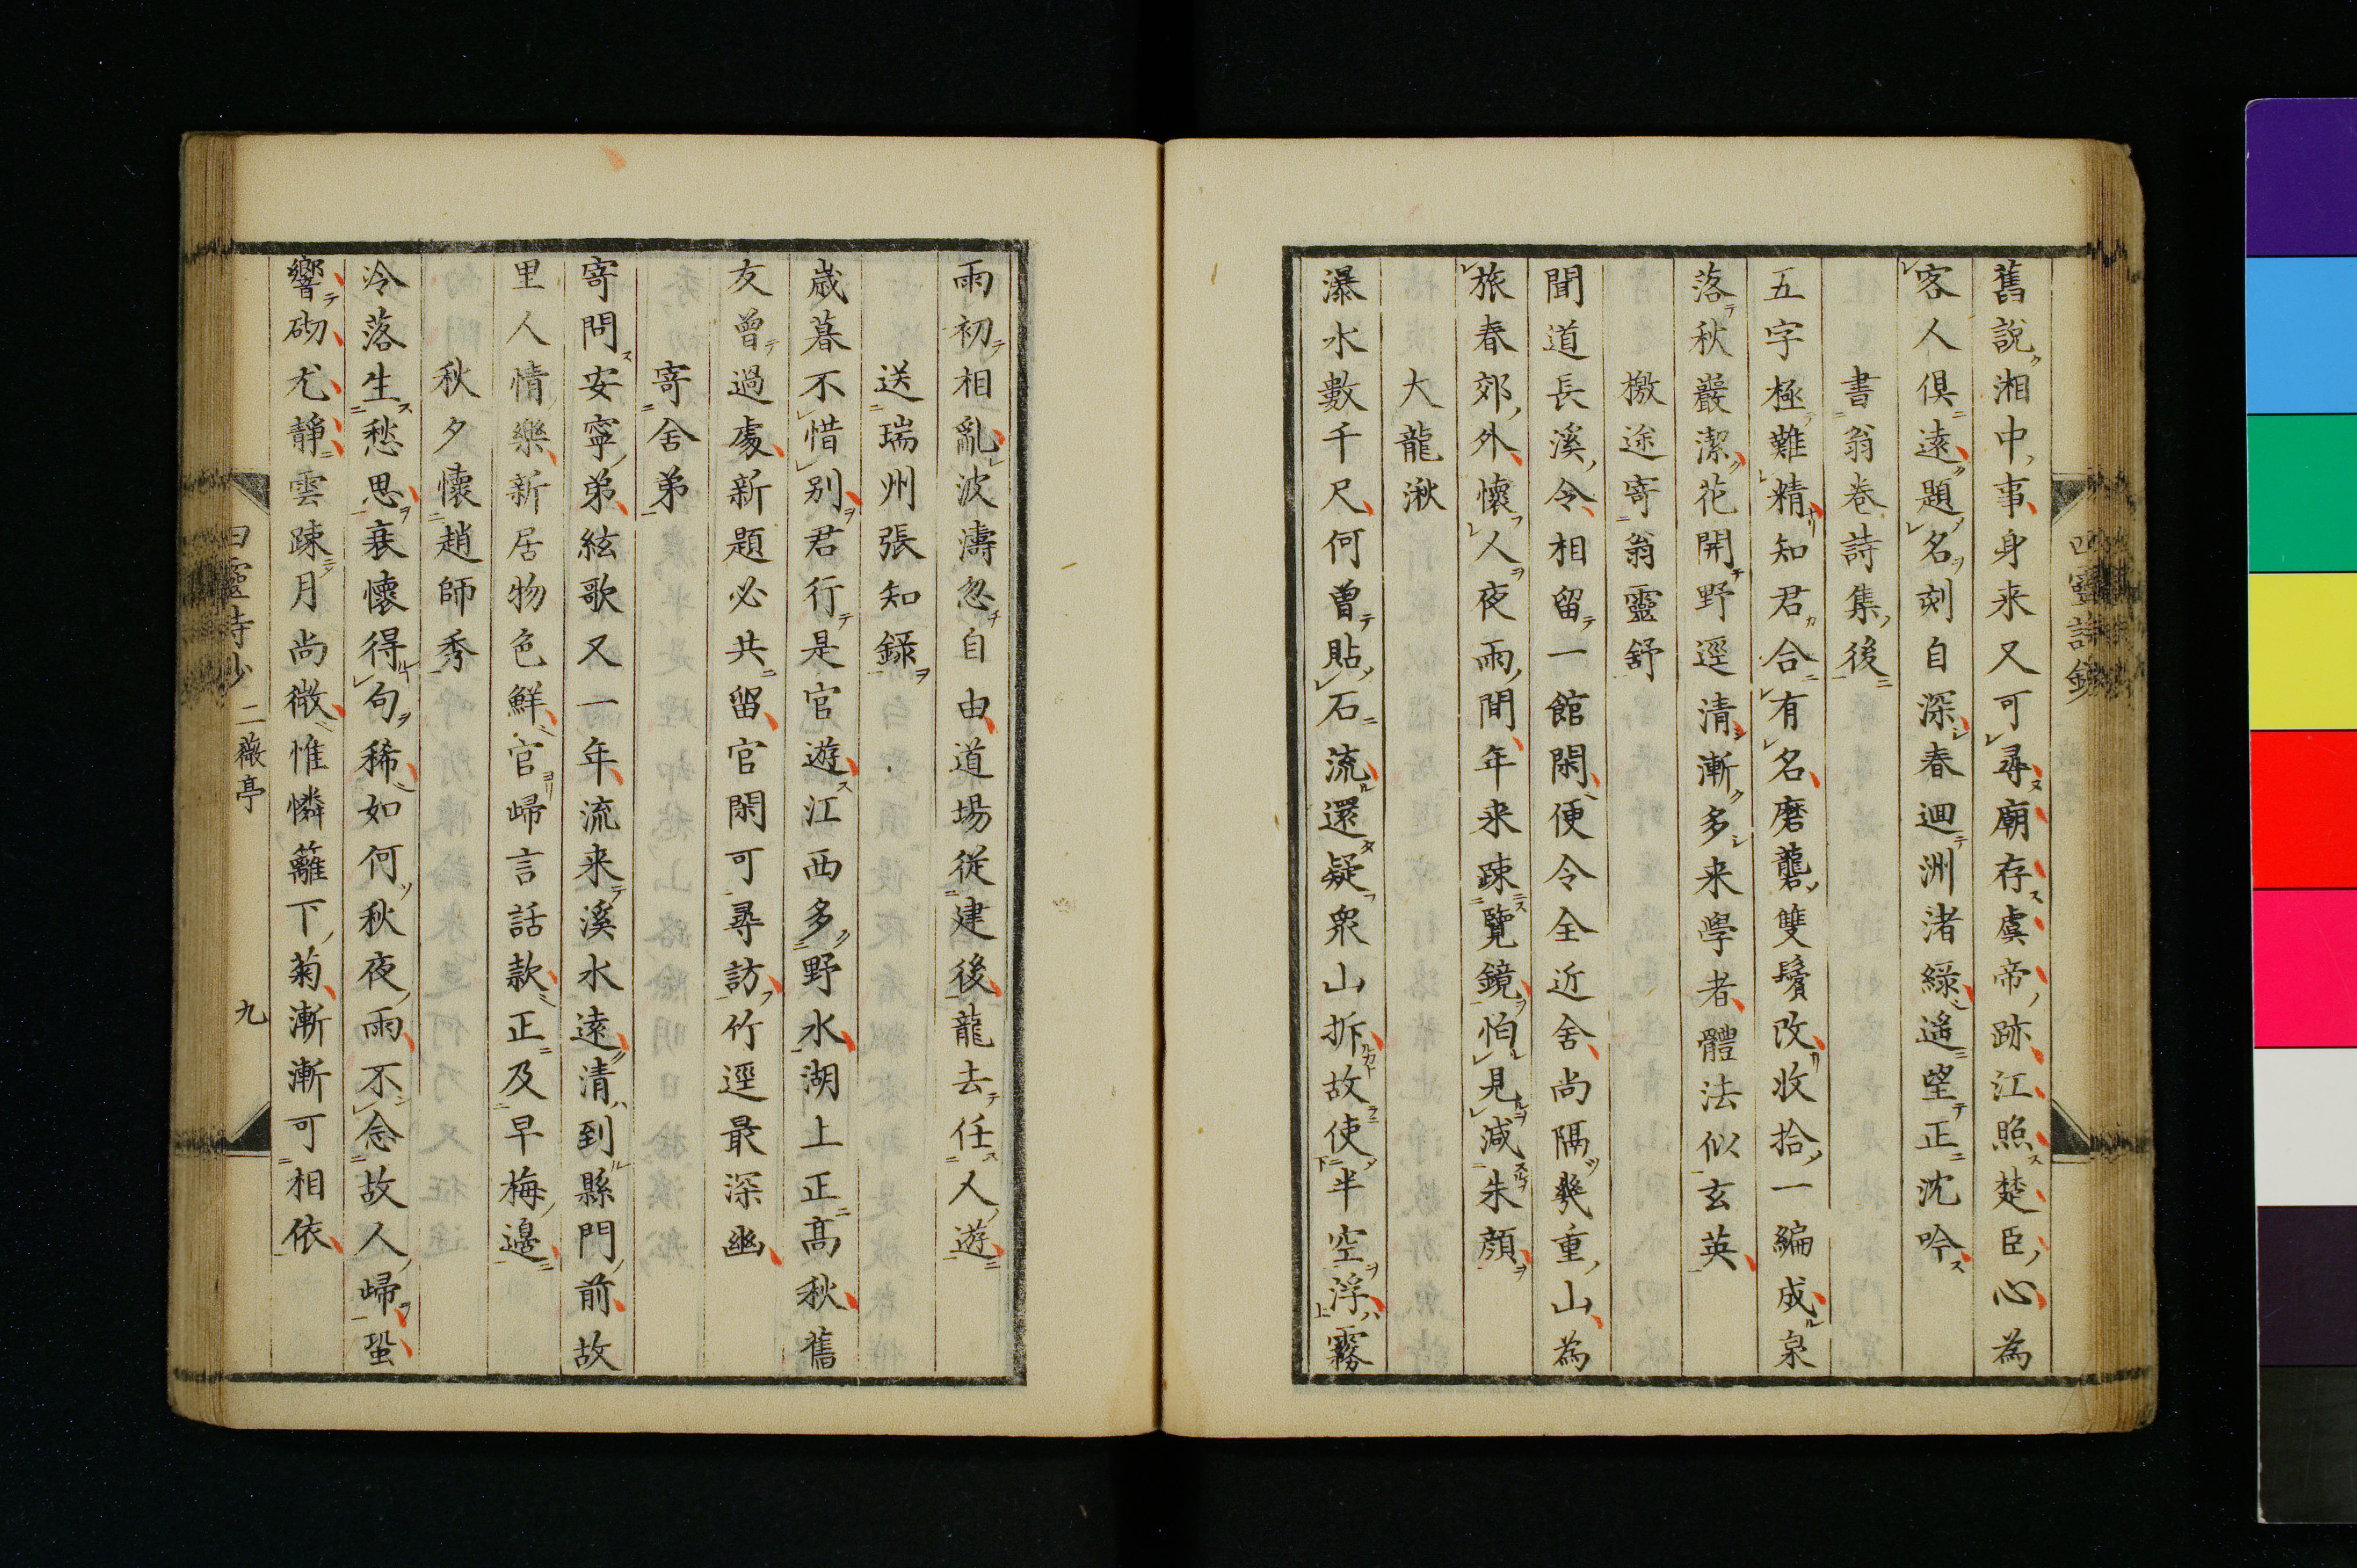 舊說湘中事身来又可尋廟存虞帝跡江照楚臣心為
客人俱遠題名刻自深春迴洲渚綠遙望正沈吟
書翁卷詩集後
五字極難精知君合有名磨礱雙鬢改收拾一編成泉
落秋巖潔花開野逕清漸多来學者體法似玄英
檄途寄翁靈舒
聞道長溪令相留一館閑便令全近舍尚隔幾重山為
旅春郊外懷人夜雨間年来疎覽鏡怕見減朱顔
大龍湫
瀑水數千尺何曽貼石流還疑衆山拆故使半空浮霧
雨初相亂波濤忽自由道場従建後龍去任人遊
送瑞州張知錄
歳暮不惜别君行是官遊江西多野水湖上正高秋舊
友曽過處新題必共留官閑可尋訪竹逕最深幽
寄舍弟
寄問安寧弟絃歌又一年流来溪水遠清到縣門前故
里人情樂新居物色鮮官歸言話款正及早梅邊
秋夕懷趙師秀
冷落生愁思衰懷得句稀如何秋夜雨不念故人歸蛩
響砌尤靜雲疎月尚微惟憐籬下菊漸漸可相依
四靈詩鈔 二薇亭 九